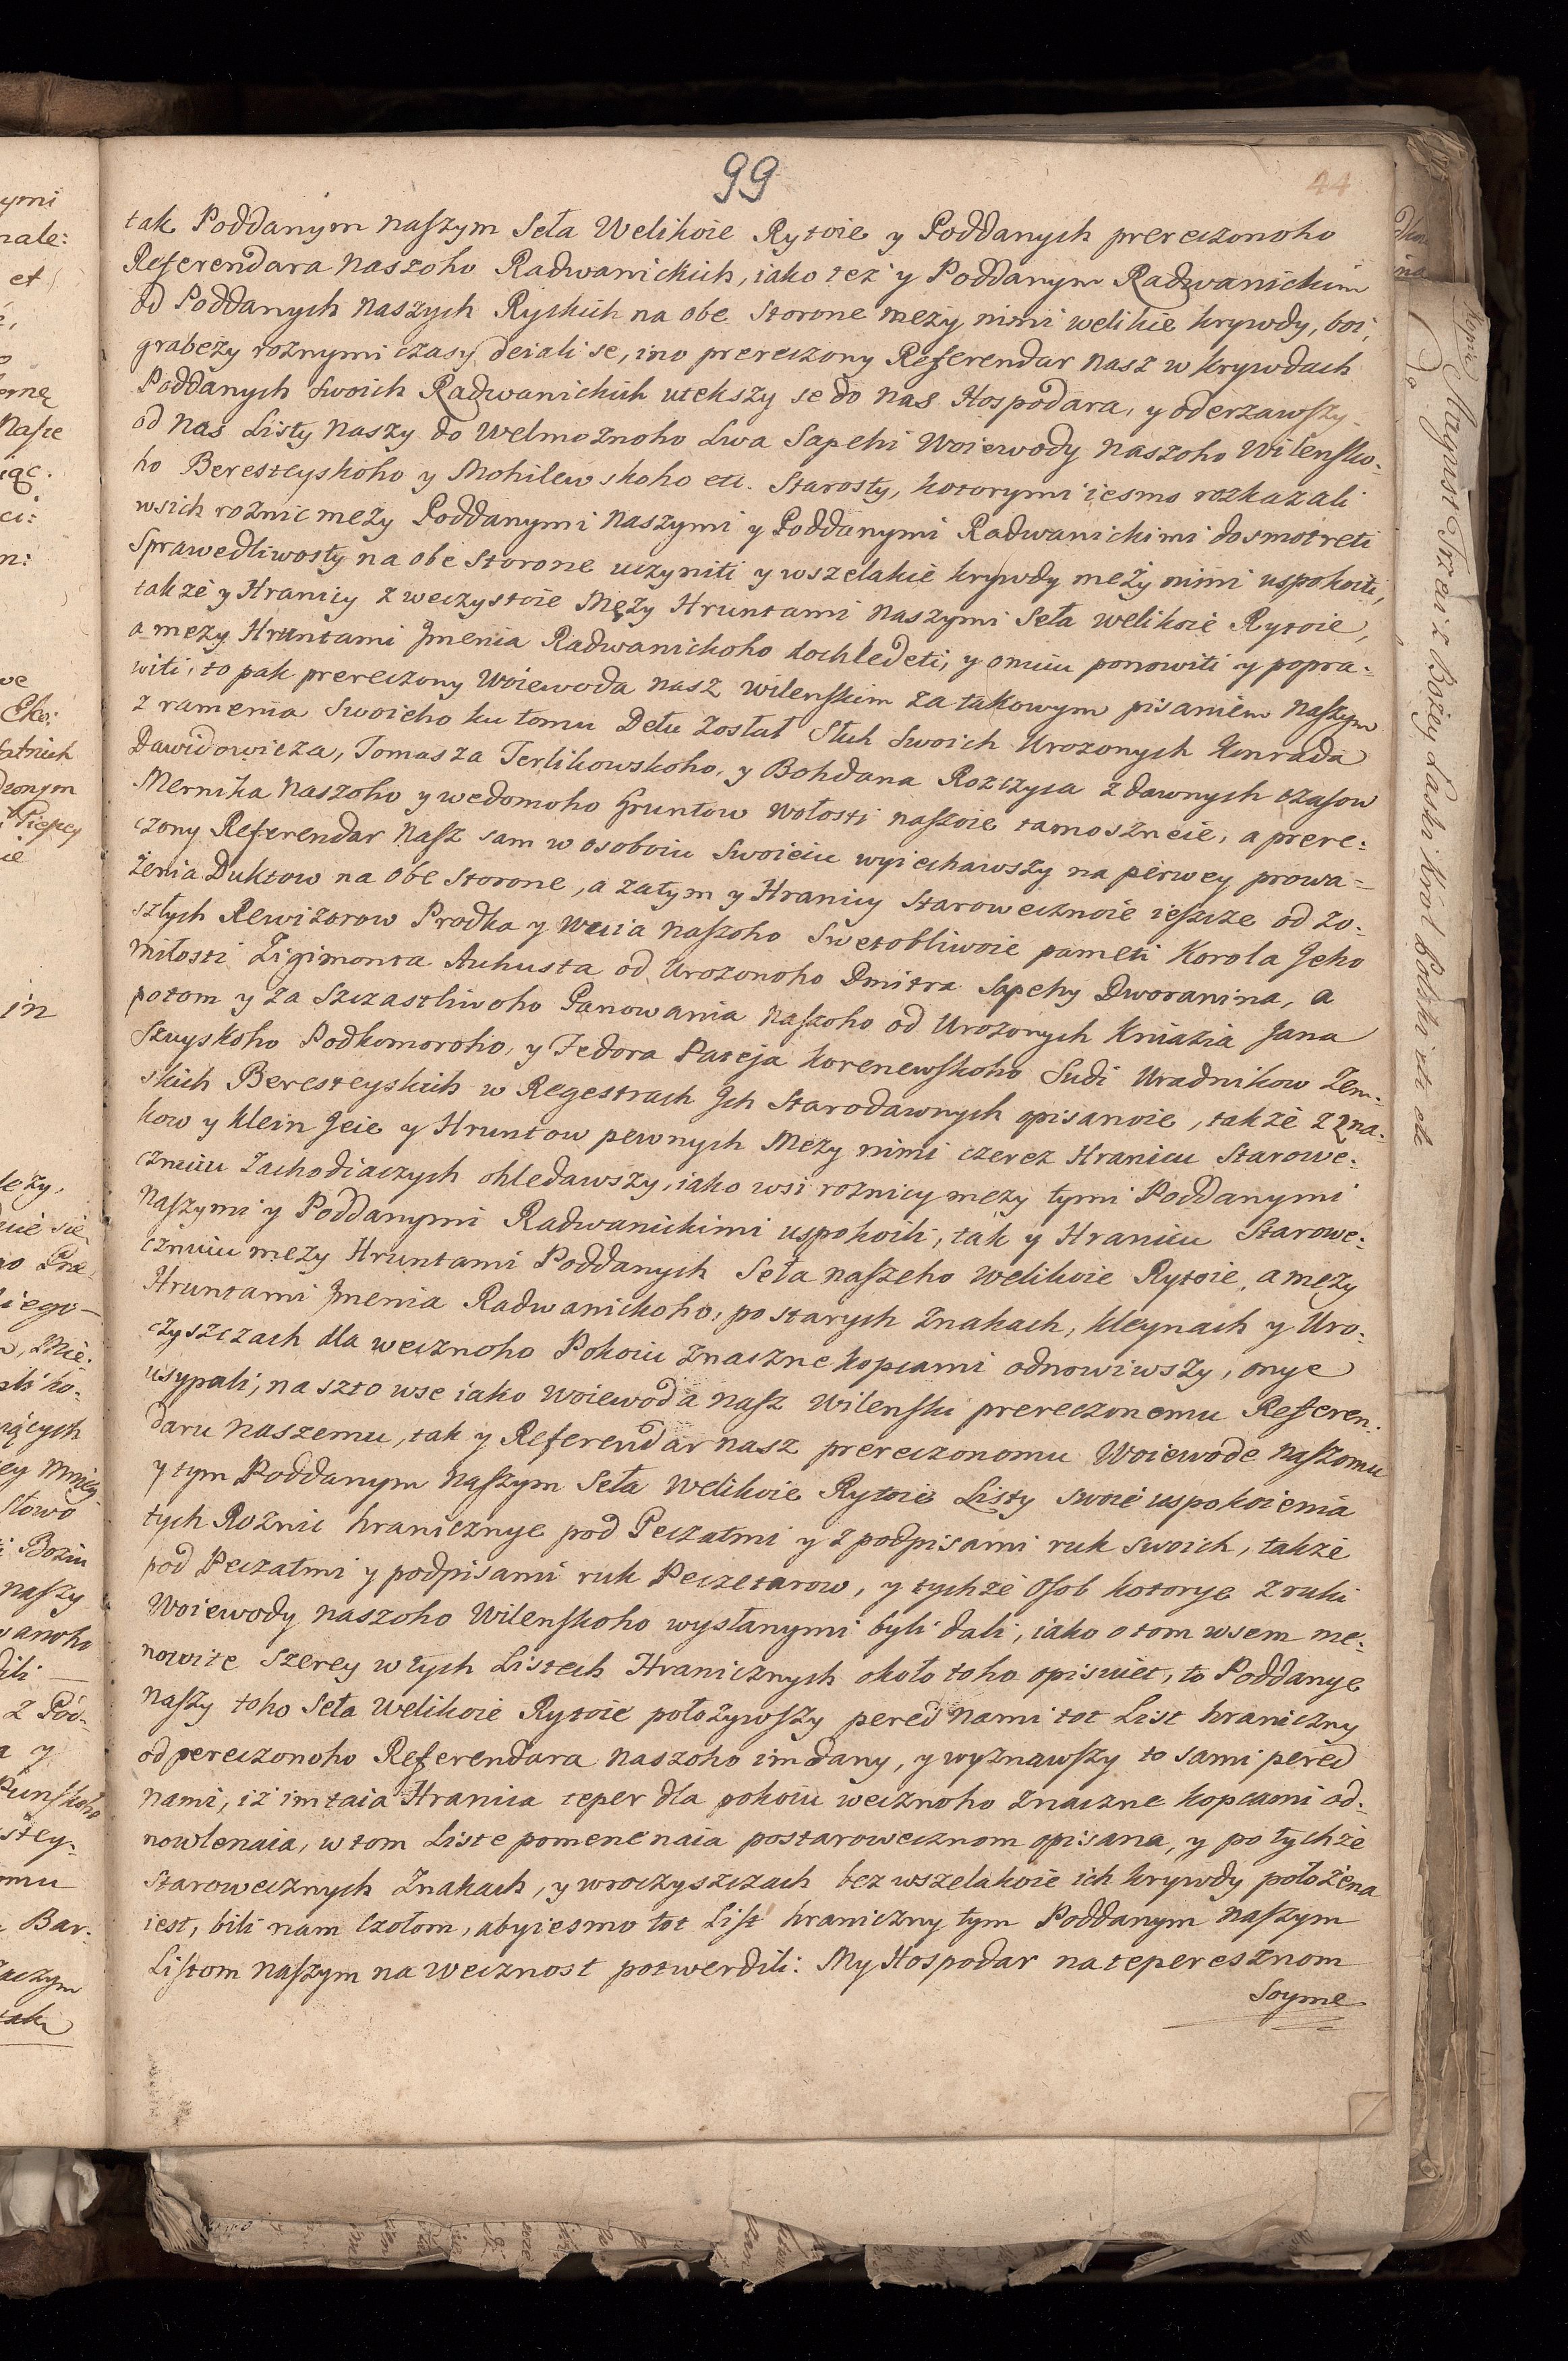 99
44
tak Poddanym naszym Seła Welikoie Rytoie y Poddanych prereczonoho
Referendara Naszoho Radwanickich, iako też y Poddanym Radwanickim
od Poddanych Naszych Ryckich na obe storone meży nimi welikie krywdy, boi,
grabeży roznymi czasy deiali se, ino prereczony Referendar Nasz w krywdach
Poddanych swoich Radwanickich utekszy se do nas Hospodara, y oderzawszy
od nas Listy Naszy do Welmożnoho Lwa Sapehi Woiewody Naszoho Wilensko-
ho Beresteyskoho y Mohilewskoho etc. Starosty, kotorymi iesmo rozkazali
wsich roznic meży Poddanymi Naszymi y Poddanymi Radwanickimi dosmotreti
Sprawedliwosty na obe storone uczyniti y wszelakie krywdy meży nimi uspokoiti,
także y Hranicy zweczystoie Meży Hruntami Naszymi Seła welikoie Rytoie,
a meży Hruntami Jmenia Radwanickoho dochledeti, y onuiu ponowiti y popra-
witi, to pak prereczony Woiewoda nasz wilenskim za takowym pisaniem Naszym
z ramenia swoieho ku tomu Dełu zosłał Słuh swoich Urozonych Konrada
Dawidowicza, Tomasza Terlikowskoho, y Bohdana Rozczyca z dawnych czasow
Mernika Naszoho y wedomoho Gruntow Wołosti naszoie tamoszneie, a prere-
czony Referendar Nasz sam w osoboiu swoieiu wyiechawszy na perwey prowa-
żenia Duktow na obe storone, a zatym y Hranicy Starowecznoie ieszcze od zo-
szłych Rewizorow Prodka y Wuia Naszoho Swetobliwoie pameti Korola Jeho
miłosti Zigimonta Auhusta od Urozonoho Dmitra Sapehy Dworanina, a
potom y za Szczastliwoho Panowania Naszoho od Urozonych Kniazia Jana
Szuyskoho Podkomoroho, y Fedora Pateja Korenewskoho Sudi Uradnikow Zem-
skich Beresteyskich w Regestrach Jch Starodawnych opisanoie, także z zna-
kow y klein Jeie y Hruntow pewnych Meży nimi czerez Hranicu Starowe-
cznuiu zachodiaczych ohledawszy, iako wsi roznicy meży tymi Poddanymi
Naszymi y Poddanymi Radwanickimi uspokoili, tak y Hranicu Starowe-
cznuiu meży Hruntami Poddanych Seła naszeho Welikoie Rytoie, a meży
Hruntami Jmenia Radwanickoho, po starych Znakach, kleynach y Uro-
czyszczach dla wecznoho Pokoiu znaczne kopcami odnowiwszy, onye
usypali, na szto wse iako Woiewoda Nasz Wilenski prereczonemu Referen-
daru naszemu, tak y Referendar nasz prereczonomu Woiewode Naszomu
y tym Poddanym Naszym Seła Welikoie Rytoie Listy swoie uspokoienia
tych Roznic hranicznye pod Peczatmi y z podpisami ruk swoich, także
pod Peczatmi y podpisami ruk Peczetarow, y tychże Osob kotorye z ruki
Woiewody Naszoho Wilenskoho wysłanymi byli dali, iako o tom wsem me-
nowite Szerey w tych Listech Hranicznych około toho opisuiet, to Poddanye
Naszy toho Seła Welikoie Rytoie położywszy pered nami tot List hraniczny
od pereczonoho Referendara Naszoho im dany, y wyznawszy to sami pered
nami, iż im taia Hranica teper dla pokoiu wecznoho znaczne kopcami od-
nowlenaia, w tom Liste pomenenaia postarowecznom opisana, y po tychże
Starowecznych Znakach, y wroczyszczach bez wszelakoie ich krywdy położena
iest, bili nam czołom, abyiesmo tot List hraniczny tym Poddanym Naszym
Listom Naszym na Wecznost potwerdili: My Hospodar na teperesznom
Soyme
August Trzeci z Bożey Łaski Król Polski etc etc